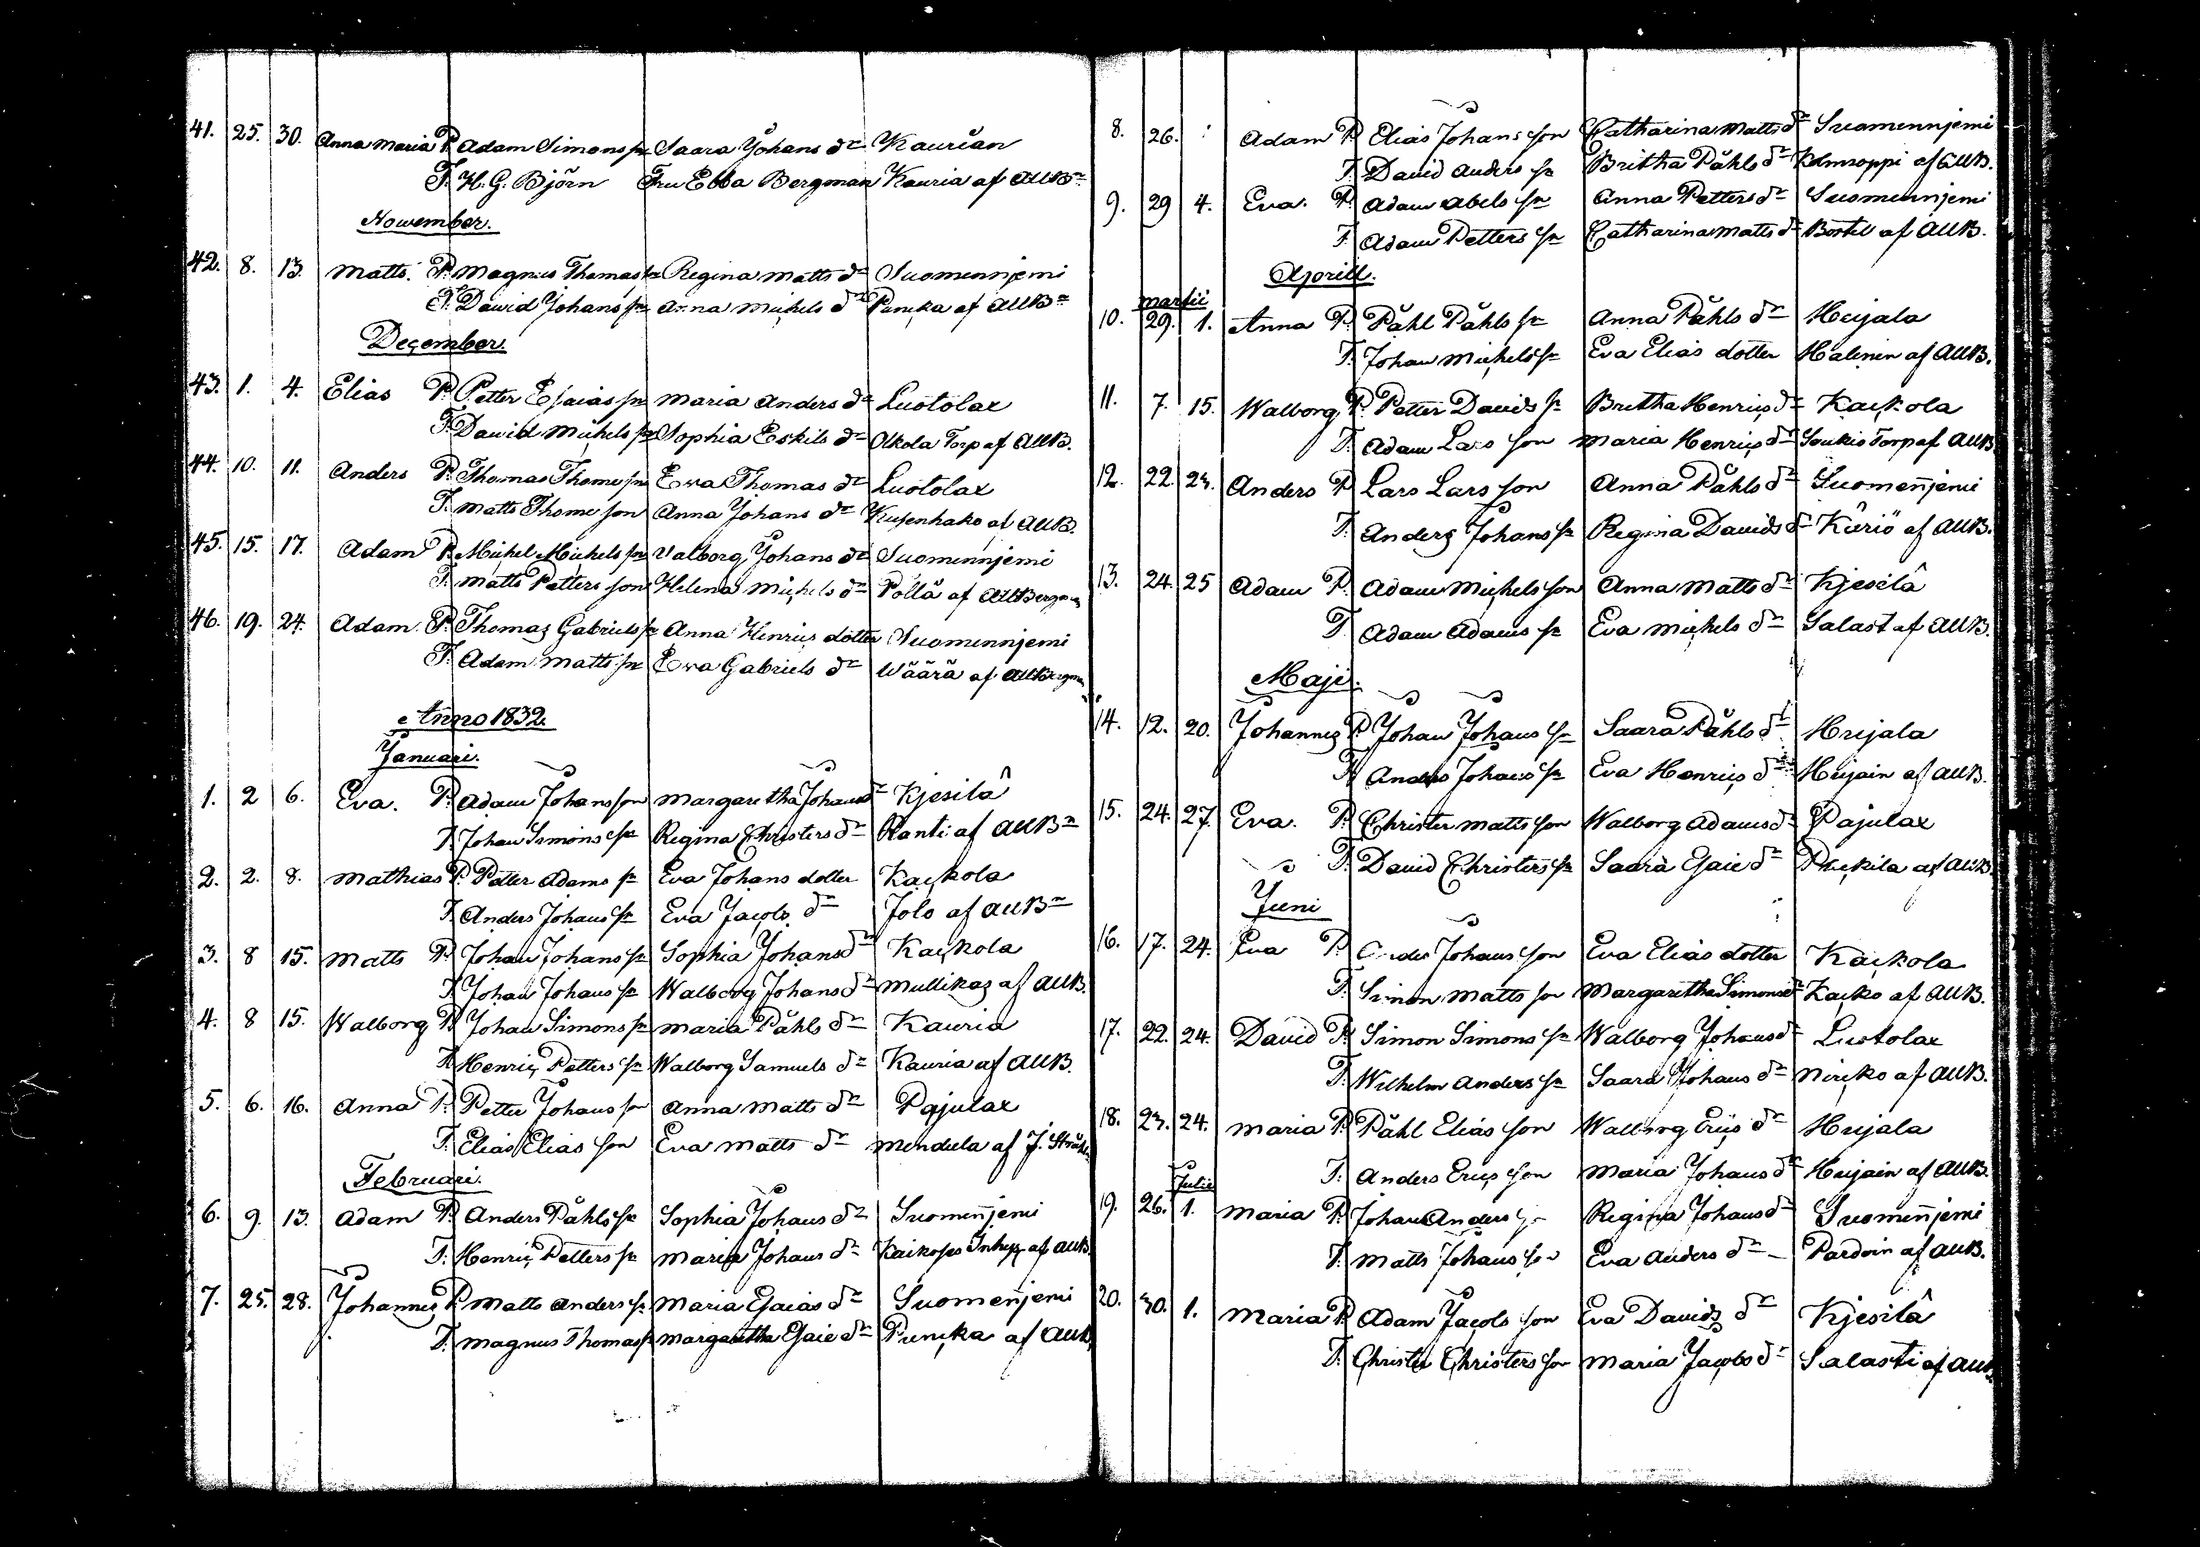 41. 25. 30. Anna Maria P. Adam Simons sn Saara Johans dr Kaurian
F. H. G. Björn Fru Ebba Bergman Kauria af AUBn
Nowember.
42. 8. 13. Matts. P. Magnus Thomas sn Regina Matts dr Suomennjemi
F. Dawid Johans sn Anna Michels dr Puncka af AUBn
December.
43. 1. 4. Elias P. Petter Esaias sn Maria Anders dr Luotolax
F. Dawid Michels sn Sophia Eskils dr Olkola Torp af AUB.
44. 10. 11. Anders P. Thomas Thome sn Ewa Thomas dr Luotolax
F. Matts Thome son Anna Johans dr af AUB.
45. 15. 17. Adam P. Michel Michels sn Valborg Johans dr Suomennjemi
F. Matts Petters son Helena Michels dr Pöllä af AUBergman
46. 19. 24. Adam. P. Thomas Gabriels sn Anna Henrics dotter Suomennjemi
F. Adam Matts sn Ewa Gabriels dr Wäärä af AUBergman
Anno 1832.
Januari.
1. 2 6. Eva. P. Adam Johans son Margaretha Johans dr Kjesilä
F. Johan Simons sn Regina Christers dr Ranti af AUBn
2. 2. 8. Mathias P. Petter Adams sn Eva Johans dotter Kackola
F. Anders Johans sn Eva Jacobs dr Jolo af AUBn
3. 8 15. Matts P. Johan Johans sn Sophia Johans dr Kackola
F. Johan Johans sn Walborg Johans dr Mullikas af AUB.
4. 8 15. Walborg P. Johan Simons sn Maria Påhls dr Kauria
F. Henric Petters sn Walborg Samuels dr Kauria af AUB.
5. 6. 16. Anna P. Petter Johans son Anna Matts dr Pajulax
F. Elias Elias son Eva Matts dr Mendula af J.
Februari.
6. 9. 13. Adam P. Anders Påhls sn Sophia Johans dr Suomenjemi
F. Henric Petters sn Maria Johans dr Kaikopes Inhys af AUB.
7. 25. 28. Johannes P. Matts Anders sn Maria Esaias dr Suomenjemi
F. Magnus Thomas sn Margaretha Esaie dr Puncka af AUB
8. 26. Adam P. Elias Johans son Catharina Matts dr Suomennjemi
F. David Anders sn Britha Påhls dr af AUB.
9. 29 4. Eva. P. Adam Abels sn Anna Petters dr Suomennjemi
F. Adam Petters sn Catharina Matts dr af AUB.
Aprill.
Martii
10. 29. 1. Anna P. Påhl Påhls sn Anna Påhls dr Heijala
F. Johan Michels sn Eva Elias dotter Halinen af AUB.
11. 7. 15. Walborg P. Petter Davids sn Britha Henrics dr Kackola
F. Adam Lars son Maria Henrics dr Soukio Torp af AUB
12. 22. 23. Anders P. Lars Lars son Anna Påhls dr Suomenjemi
F. Anders Johans sn Regina Davids dr Kuriö af AUB.
13. 24. 25 Adam P. Adam Michels son Anna Matts dr Kjesilä
F. Adam Adams sn Eva Michels dr Salast af AUB.
Maji.
14. 12. 20. Johannes P. Johan Johans sn Saara Påhls dr Heijala
F. Anders Johans sn Eva Henrics dr Heijain af AUB.
15. 24. 27. Eva. P. Christer Matts son Walborg Adams dr Pajulax
F. David Christers sn Saara Esaie dr Puckila af AUB.
Juni
16. 17. 24. Eva P. Ander Johans son Eva Elias dotter Kackola
F. Simon Matts son Margaretha Simons dr Kaiko af AUB.
17. 22. 24. David P. Simon Simons sn Walborg Johans dr Luotolax
F. Wilhelm Anders sn Saara Johans dr Niriko af AUB.
18. 23. 24. Maria P. Påhl Elias son Walborg Erics dr Heijala
F. Anders Erics son Maria Johans dr Heijain af AUB.
Julii
19. 26. 1. Maria P. Johan Anders sn Regina Johans dr Suomenjemi
F. Matts Johans son Eva Anders dr Pardoin af AUB.
20. 30. 1. Maria P. Adam Jacobs son Eva Davids dr Kjesilä
F. Christer Christers son Maria Jacobs dr Salasti af AUB.